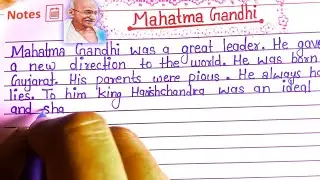 Notes
Mahatma Gandhi
Mahatma Gandhi was a great leader. He gave
a new direction to the world. He was born
Gujarat. His parents were pious. He always ha
lies. To him king Harishchandra was an ideal
and sha